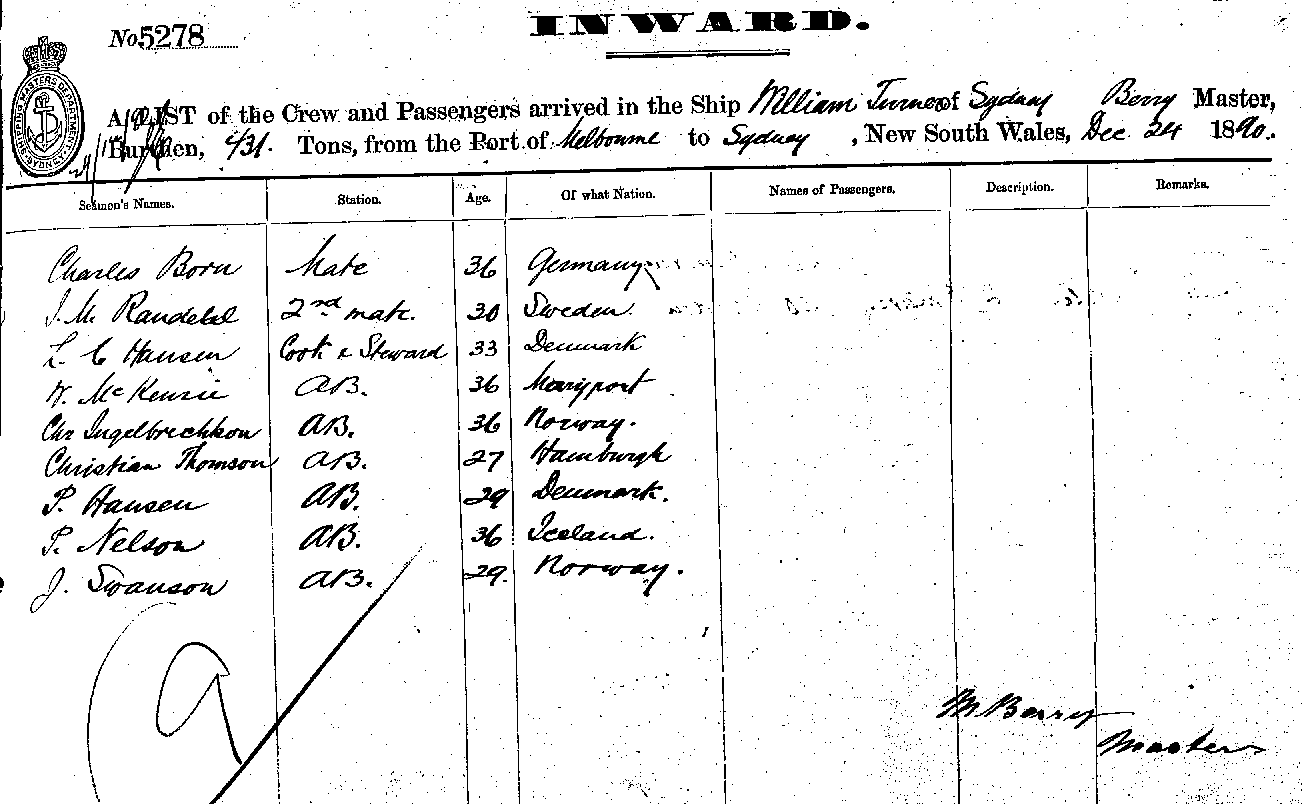 INWARD.
No. 5278
A LIST of the Crew and Passengers arrived in the Ship William Turner of Sydney Berry Master,
Burden, 431. Tons, from the Port of Melbourne to Sydney, New South Wales, Dec 24 1890.
Seamen's Names. Station. Age. Of what Nation. Names of Passengers. Description. Remarks.
Charles Born Mate 36 Germany
J. M. Randehl 2nd mate. 30 Sweden.
L. C Hansen Cook & Steward 33 Denmark
W. McKenzie AB. 36 Maryport
Chr Ingelbrechtson AB. 36 Norway.
Christian Thomson AB. 27 Hamburgh
P. Hansen AB. 29 Denmark.
P. Nelson AB. 36 Iceland.
J. Swanson AB. 29. Norway.
9
M Berry
Master